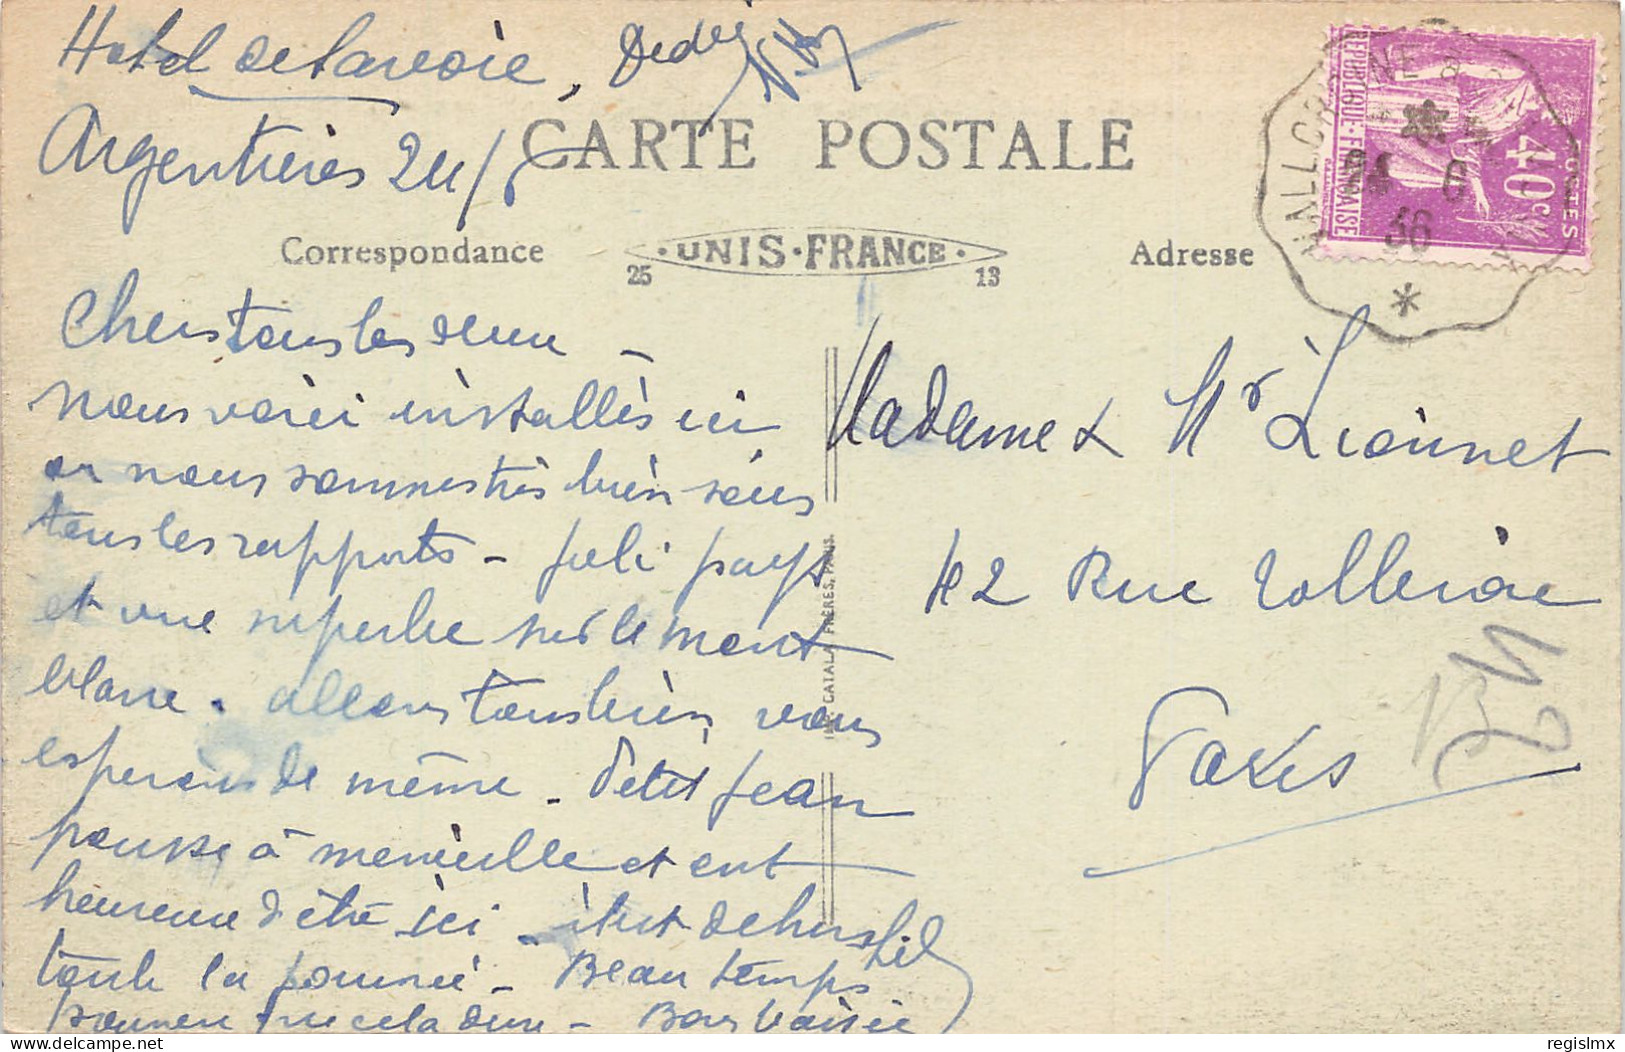 Hotel de Savoie, Dédé
Argentières 24/6
CARTE POSTALE
Correspondance
UNIS-FRANCE
25 13
Adresse
REPUBLIQUE·FRANÇAISE
40c
POSTES
VALLORCINE
24 6
36
Chers tous les deux –
nous voici installés ici
où nous sommes très bien sous
tous les rapports – Joli pays
et vue superbe sur le mont
blanc. allons tous bien, vous
esperons de même. Petit Jean
pousse à merveille et est
heureux d'être ici. il est dehors
toute la journée – Beau temps
que cela dure – Bons baisers
Madame & Mr Lionnet
42 Rue Tolbiac
Paris
IMP. CATALA FRÈRES, PARIS
regislmx
delcampe.net